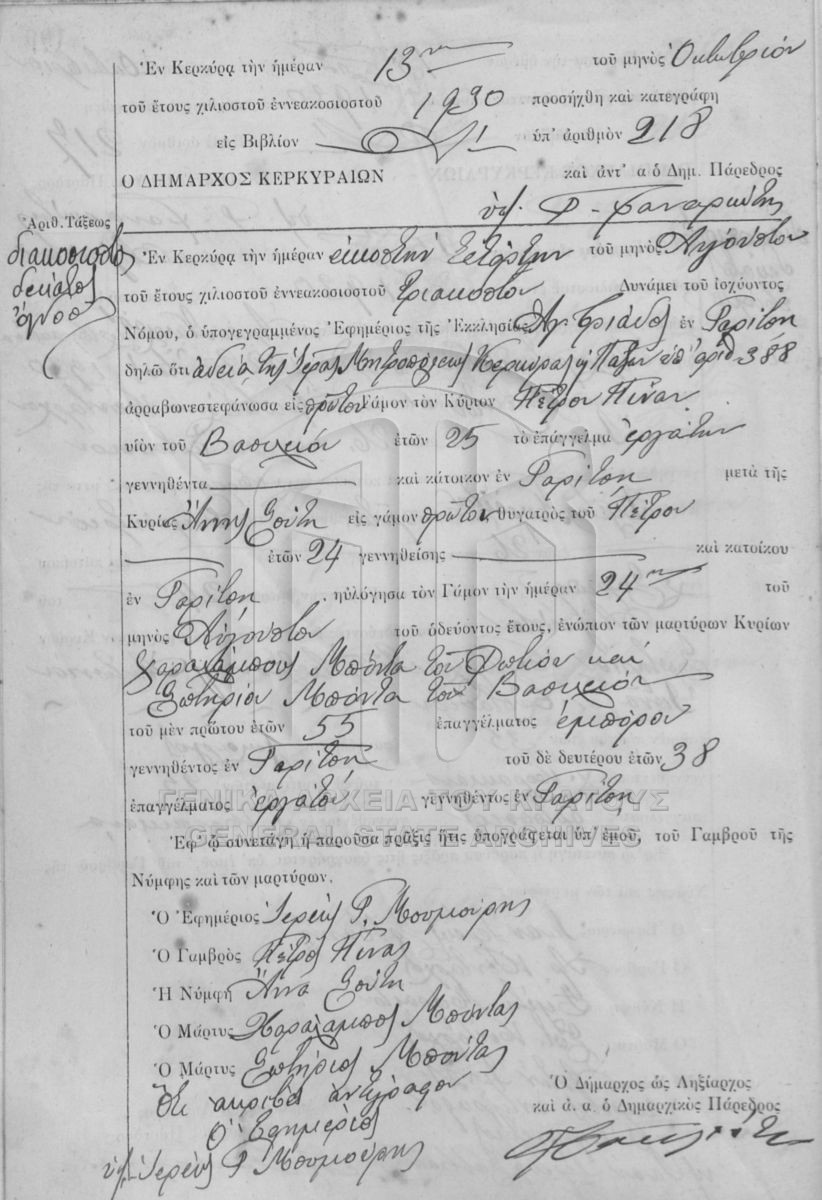 Ἐν Κερκύρᾳ τὴν ἡμέραν 13ην τοῦ μηνὸς Ὀκτωβρίου
τοῦ ἔτους χιλιοστοῦ ἐννεακοσιοστοῦ 1930 προσήχθη καὶ κατεγράφη
εἰς Βιβλίον ὑπ' ἀριθμὸν 218
Ο ΔΗΜΑΡΧΟΣ ΚΕΡΚΥΡΑΙΩΝ καὶ ἀντ' α ὁ Δημ. Πάρεδρος
Ἀριθ. Τάξεως
διακοσιοστὸς
δέκατος
ὄγδοος
Ἐν Κερκύρᾳ τὴν ἡμέραν εἰκοστὴν τετάρτην τοῦ μηνὸς Αὐγούστου
τοῦ ἔτους χιλιοστοῦ ἐννεακοσιοστοῦ τριακοστοῦ Δυνάμει τοῦ ἰσχύοντος
Νόμου, ὁ ὑπογεγραμμένος Ἐφημέριος τῆς Ἐκκλησίας Ἁγ. Τριάδος ἐν Γαρίτσῃ
δηλῶ ὅτι ἀδείᾳ τῆς Ἱερᾶς Μητροπόλεως Κερκύρας ὑπ' ἀριθ 388
ἀρραβωνεστεφάνωσα εἰς πρῶτον Γάμον τὸν Κύριον Πέτρον Πίναν
υἱὸν τοῦ Βασιλείου ἐτῶν 25 τὸ ἐπάγγελμα ἐργάτην
γεννηθέντα καὶ κάτοικον ἐν Γαρίτσῃ μετὰ τῆς
Κυρίας Ἄννης Σούτη εἰς γάμον πρῶτον θυγατρὸς τοῦ Πέτρου
ἐτῶν 24 γεννηθείσης καὶ κατοίκου
ἐν Γαρίτσῃ, ηὐλόγησα τὸν Γάμον τὴν ἡμέραν 24ην τοῦ
μηνὸς Αὐγούστου τοῦ ὁδεύοντος ἔτους, ἐνώπιον τῶν μαρτύρων Κυρίων
Χαραλάμπους Μπούντα τοῦ Φωτίου καὶ
Σωτηρίου Μπούντα τοῦ Βασιλείου
τοῦ μὲν πρώτου ἐτῶν 55 ἐπαγγέλματος ἐμπόρου
γεννηθέντος ἐν Γαρίτσῃ τοῦ δὲ δευτέρου ἐτῶν 38
ἐπαγγέλματος ἐργάτου γεννηθέντος ἐν Γαρίτσῃ
ΓΕΝΙΚΑ ΑΡΧΕΙΑ ΤΟΥ ΚΡΑΤΟΥΣ
GENERAL STATE ARCHIVES
Ἐφ' ᾧ συνετάγη ἡ παροῦσα πρᾶξις ἥτις ὑπογράφεται ὑπ' ἐμοῦ, τοῦ Γαμβροῦ τῆς
Νύμφης καὶ τῶν μαρτύρων.
Ὁ Ἐφημέριος Ἱερεὺς Γ. Μουμούρης
Ὁ Γαμβρὸς Πέτρος Πίνας
Ἡ Νύμφη Ἄννα Σούτη
Ὁ Μάρτυς Χαράλαμπος Μπούντας
Ὁ Μάρτυς Σωτήριος Μπούντας
Ὅτι ἀκριβὲς ἀντίγραφον
Ὁ Ἐφημέριος
ὑπ. Ἱερεὺς Γ. Μουμούρης
Ὁ Δήμαρχος ὡς Ληξίαρχος
καὶ ἀ. α. ὁ Δημαρχικὸς Πάρεδρος